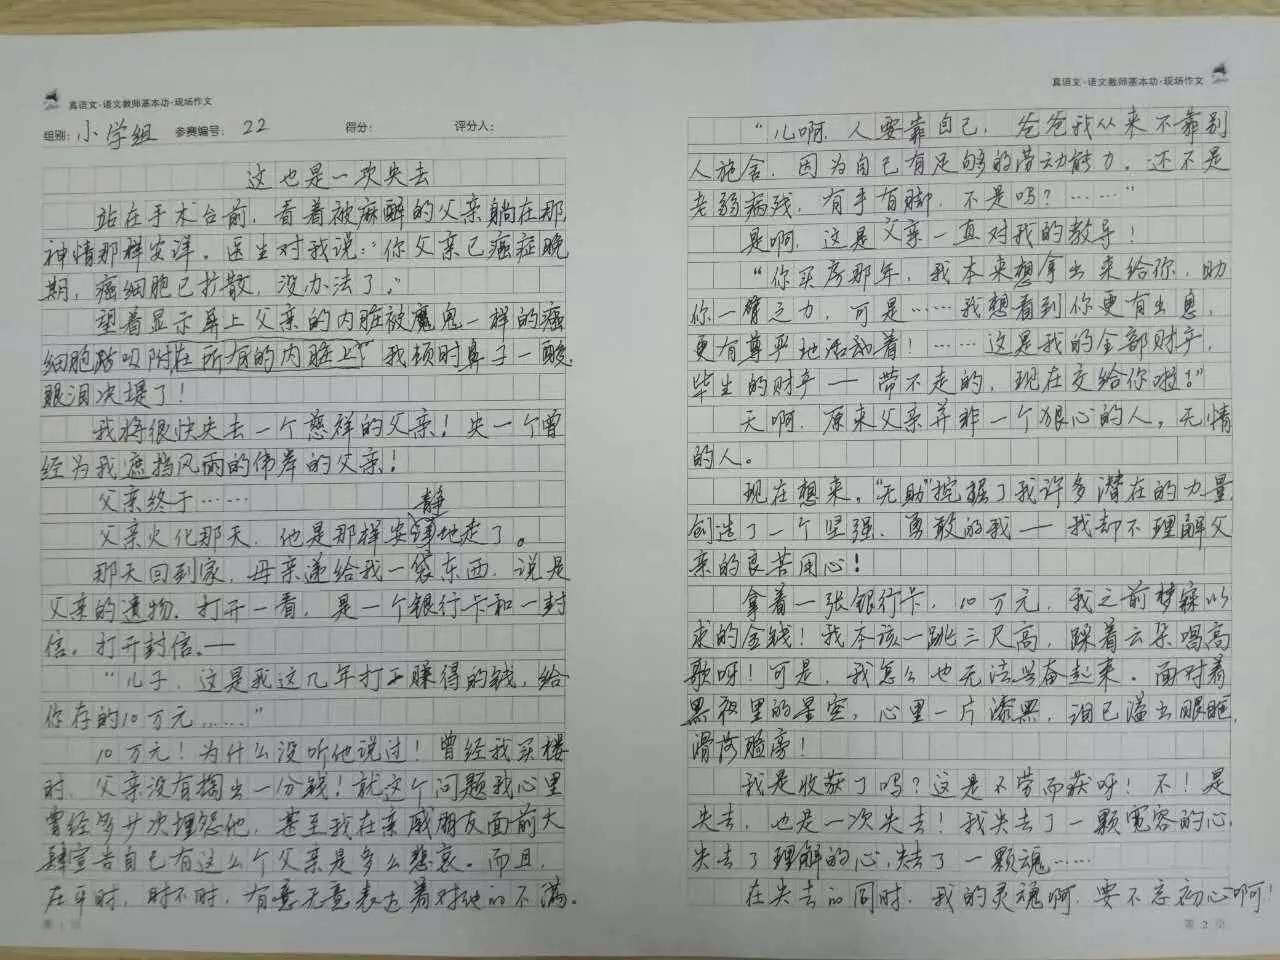 真语文·语文教师基本功·现场作文
组别：小学组 参赛编号：22 得分： 评分人：
这也是一次失去
站在手术台前，看着被麻醉的父亲躺在那，
神情那样安详。医生对我说：“你父亲已癌症晚
期，癌细胞已扩散，没办法了。”
望着显示屏上父亲的内脏被魔鬼一样的癌
细胞吸附在所有的内脏上，我顿时鼻子一酸，
眼泪决堤了！
我将很快失去一个慈祥的父亲！失一个曾
经为我遮挡风雨的伟岸的父亲！
父亲终于……
父亲火化那天，他是那样安静地走了。
那天回到家，母亲递给我一袋东西，说是
父亲的遗物。打开一看，是一个银行卡和一封
信。打开封信。——
“儿子，这是我这几年打工赚得的钱，给
你存的10万元……”
10万元！为什么没听他说过！曾经我买楼
时，父亲没有掏出一分钱！就这个问题我心里
曾经多少次埋怨他，甚至我在亲戚朋友面前大
肆宣告自己有这么个父亲是多么悲哀。而且，
在平时，时不时，有意无意表达着对他的不满。
第1页
真语文·语文教师基本功·现场作文
“儿啊，人要靠自己，爸爸我从来不靠别
人施舍，因为自己有足够的劳动能力，还不是
老弱病残，有手有脚，不是吗？……”
是啊，这是父亲一直对我的教导！
“你买房那年，我本来想拿出来给你，助
你一臂之力，可是……我想看到你更有出息，
更有尊严地活动着！……这是我的全部财产，
毕生的财产——带不走的，现在交给你啦！”
天啊，原来父亲并非一个狠心的人，无情
的人。
现在想来，“无助”挖掘了我许多潜在的力量，
创造了一个坚强、勇敢的我——我却不理解父
亲的良苦用心！
拿着一张银行卡，10万元，我之前梦寐以
求的金钱！我本该一跳三尺高，踩着云朵唱高
歌呀！可是，我怎么也无法兴奋起来。面对着
黑夜里的星空，心里一片漆黑，泪已溢出眼眶，
滑落脸旁！
我是收获了吗？这是不劳而获呀！不！是
失去，也是一次失去！我失去了一颗宽容的心，
失去了理解的心，失去了一颗魂……
在失去的同时，我的灵魂啊，要不忘初心啊！
第2页